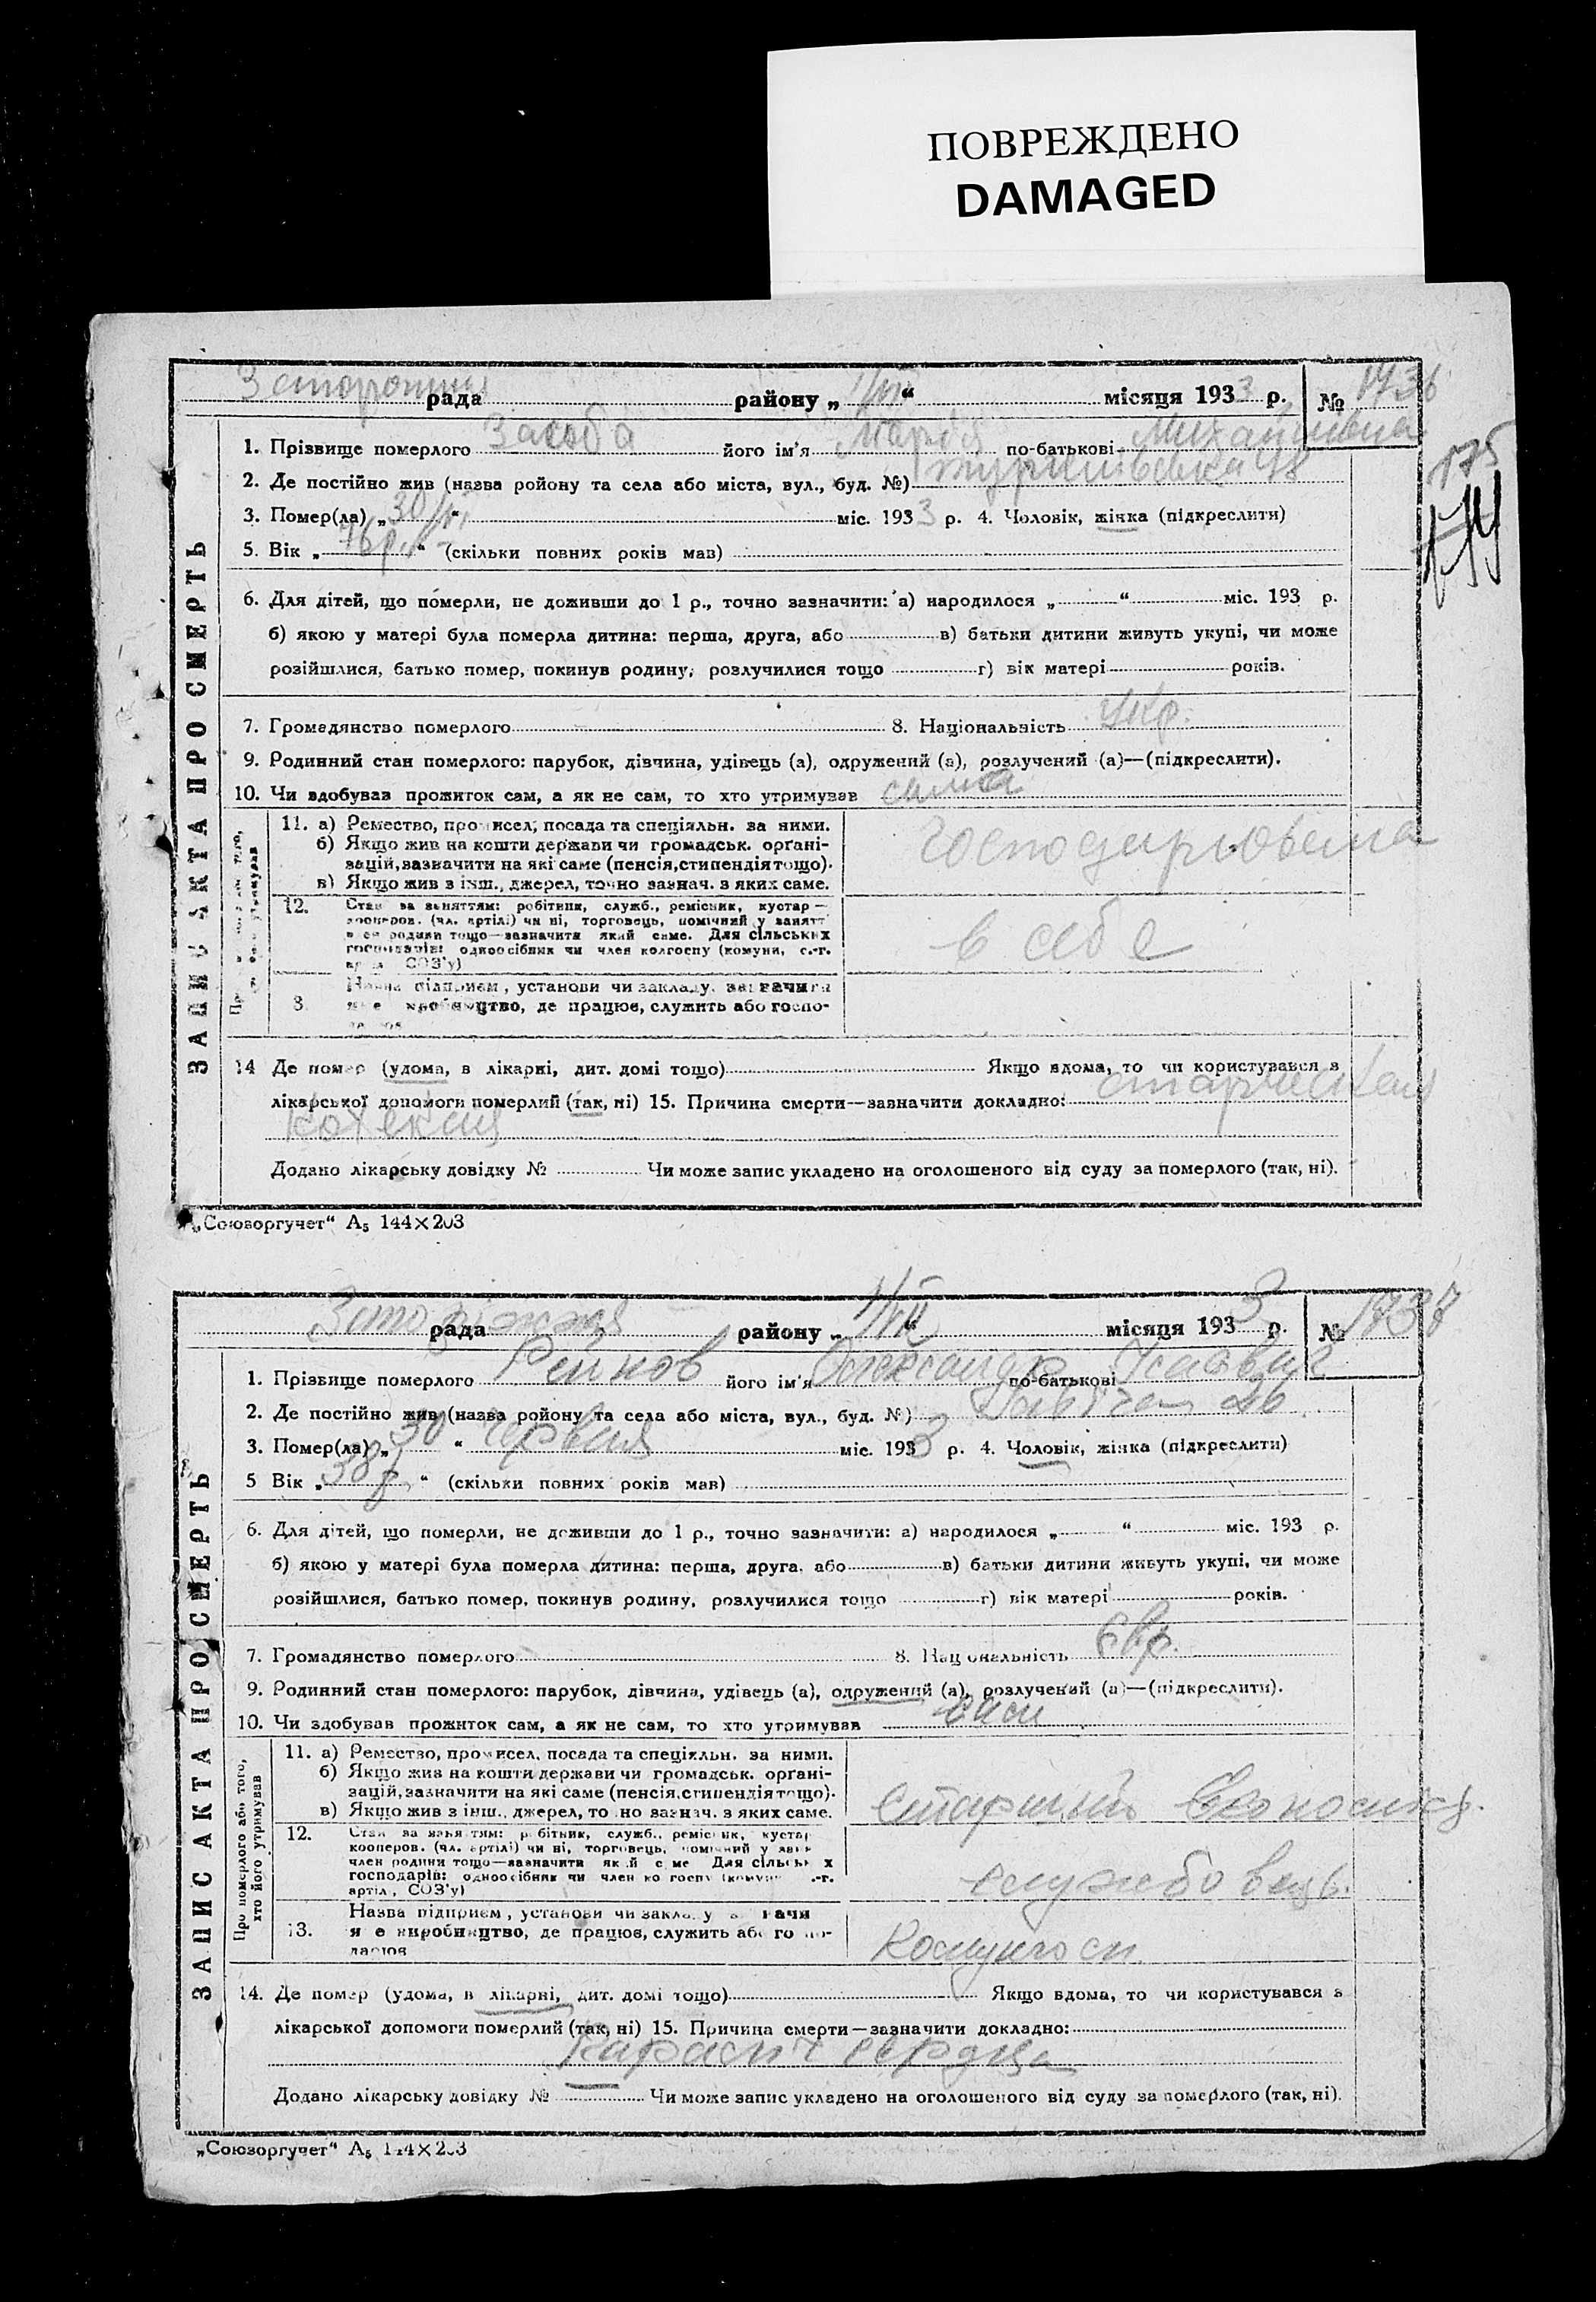 ПОВРЕЖДЕНО
DAMAGED
рада района „1/VII“ місяця 1933 р. № 1736
1. Прізвище померлого його ім'я Марія по-батькові Михайлівна
175
2. Де постійно жив (назва ройону та села або міста, вул., буд. №) 48
3. Помер(ла) „30/VI“ міс. 1933 р. 4. Чоловік, жінка (підкреслити)
5. Вік „76 р.“ (скільки повних років мав)
6. Для дітей, що померли, не доживши до 1 р., точно зазначити: а) народилося „ “ міс. 193 р.
б) якою у матері була померла дитина: перша, друга, або в) батьки дитини живуть укупі, чи може
розійшлися, батько помер, покинув родину, розлучилися тощо г) вік матері років.
7. Громадянство померлого 8. Національність укр.
9. Родинний стан померлого: парубок, дівчина, удівець (а), одружений (а), розлучений (а)—(підкреслити).
10. Чи здобував прожиток сам, а як не сам, то хто утримував сама
ЗАПИС АКТА ПРО СМЕРТЬ
11. а) Ремество, промисел, посада та спеціяльн. за ними.
б) Якщо жив на кошти держави чи громадськ. орґані-
зацій, зазначити на які саме (пенсія, стипендія тощо).
в) Якщо жив з інш., джерел, точно зазнач. з яких саме.
12. Стан за заняттям: робітник, служб., ремісник, кустар —
кооперов. (чл. артілі) чи ні, торговець, помічний у занятт
родини тощо—зазначити який саме. Для сільських
господарів: одноосібник чи член колгоспу (комуни, с.-г.
СОЗ'у)
в себе
Назва підприєм., установи чи закладу, зазначити
виробництво, де працює, служить або госпо-
14 Де помер (удома, в лікарні, дит. домі тощо) Якщо вдома, то чи користувався з
лікарської допомоги померлий (так, ні) 15. Причина смерти—зазначити докладно: старческая
кахексия
Додано лікарську довідку № Чи може запис укладено на оголошеного від суду за померлого (так, ні).
„Союзоргучет“ А₅ 144×203
рада району „1/VII“ місяця 1933 р. № 1737
1. Прізвище померлого Рейнов його ім'я Олександр по-батькові
2. Де постійно жив (назва ройону та села або міста, вул., буд. №) 26
3. Помер(ла) „30“ червня міс. 1933 р. 4. Чоловік, жінка (підкреслити)
5 Вік „38 р.“ (скільки повних років мав)
6. Для дітей, що померли, не доживши до 1 р., точно зазначити: а) народилося „ “ міс. 193 р.
б) якою у матері була померла дитина: перша, друга, або в) батьки дитини живуть укупі, чи може
розійшлися, батько помер, покинув родину, розлучилися тощо г) вік матері років.
7. Громадянство померлого 8. Національність євр.
9. Родинний стан померлого: парубок, дівчина, удівець (а), одружений (а), розлучений (а)—(підкреслити).
10. Чи здобував прожиток сам, а як не сам, то хто утримував
ЗАПИС АКТА ПРО СМЕРТЬ
Про померлого або того,
хто його утримував
11. а) Ремество, промисел, посада та спеціяльн. за ними.
б) Якщо жив на кошти держави чи громадськ. орґані-
зацій, зазначити на які саме (пенсія, стипендія тощо).
в) Якщо жив з інш., джерел, точно зазнач. з яких саме.
12. Стан за заняттям: робітник, служб., ремісник, кустар
кооперов. (чл. артілі) чи ні, торговець, помічний у
член родини тощо—зазначити який саме Для сільських
господарів: одноосібник чи член колгоспу (комуни с.-г.
артіл., СОЗ'у)
службовець.
13. Назва підприєм., установи чи закладу
виробництво, де працює, служить або госпо-
дарює
14. Де помер (удома, в лікарні, дит. домі тощо) Якщо вдома, то чи користувався з
лікарської допомоги померлий (так, ні) 15. Причина смерти—зазначити докладно:
сердца
Додано лікарську довідку № Чи може запис укладено на оголошеного від суду за померлого (так, ні).
„Союзоргучет“ А₅ 144×203